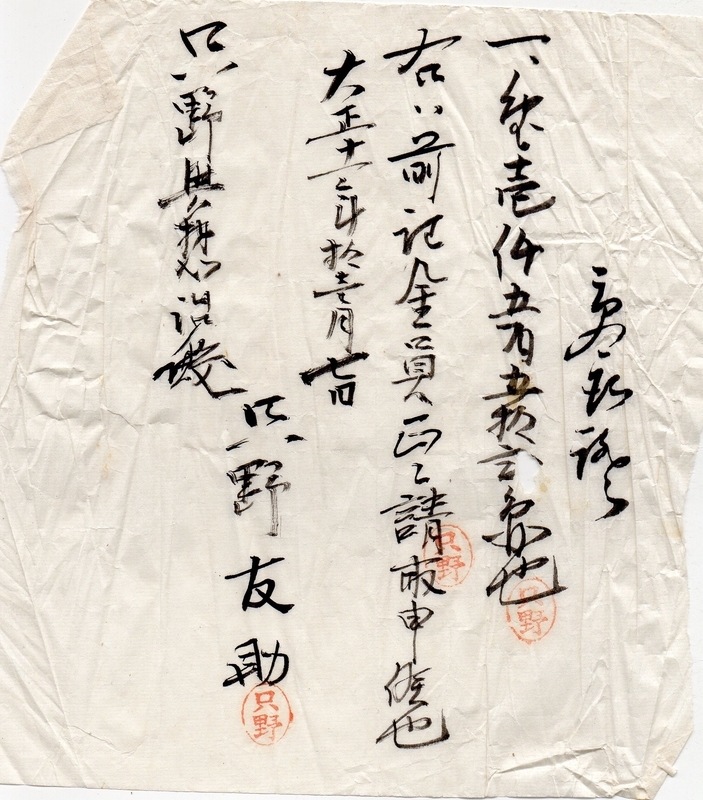 受取證
一、金壱仟五百五拾弐円也
右ハ前記金員正ニ請取申候也
大正十二年拾壱月七日
只野友助
只野
只野
只野
只野